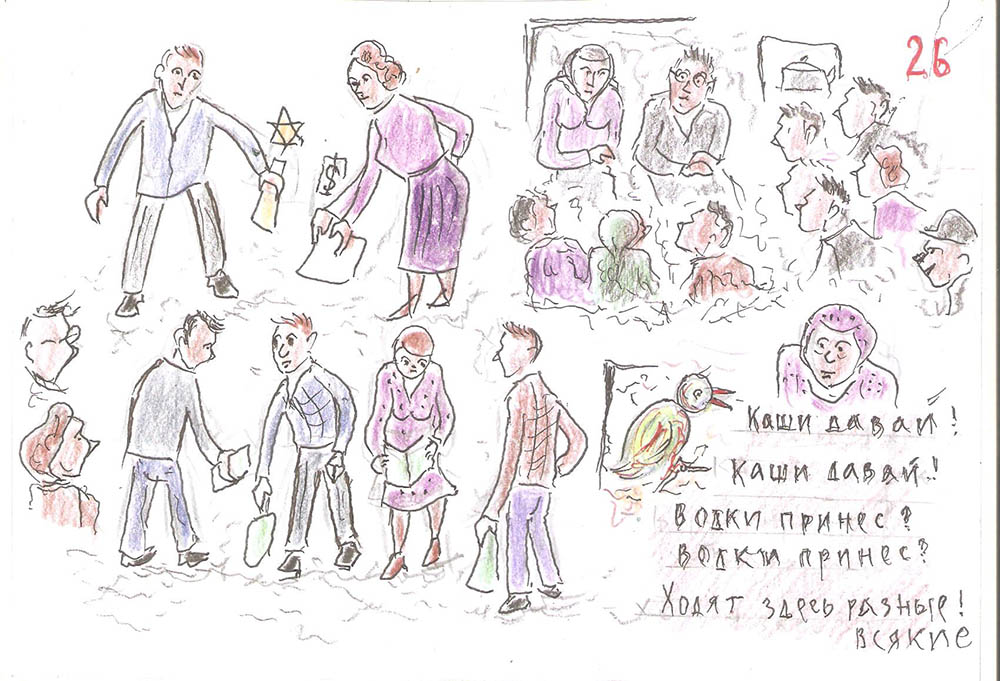 26
$
Каши давай!
Каши давай!
Водки принес?
Водки принес?
Ходят здесь разные!
Всякие